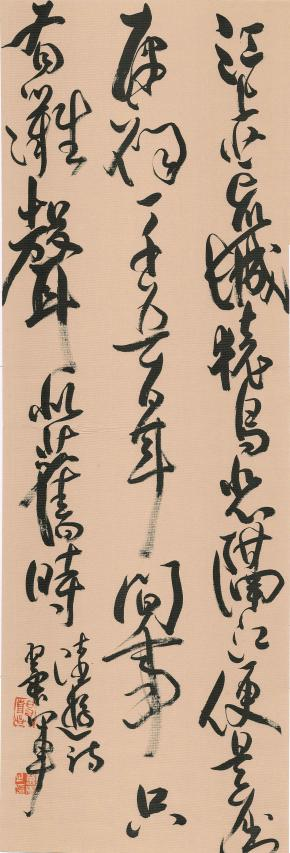 江上荒城猿鳥悲隔江便是屈
原祠一千五百年間事只
有灘聲似舊時
陸游詩